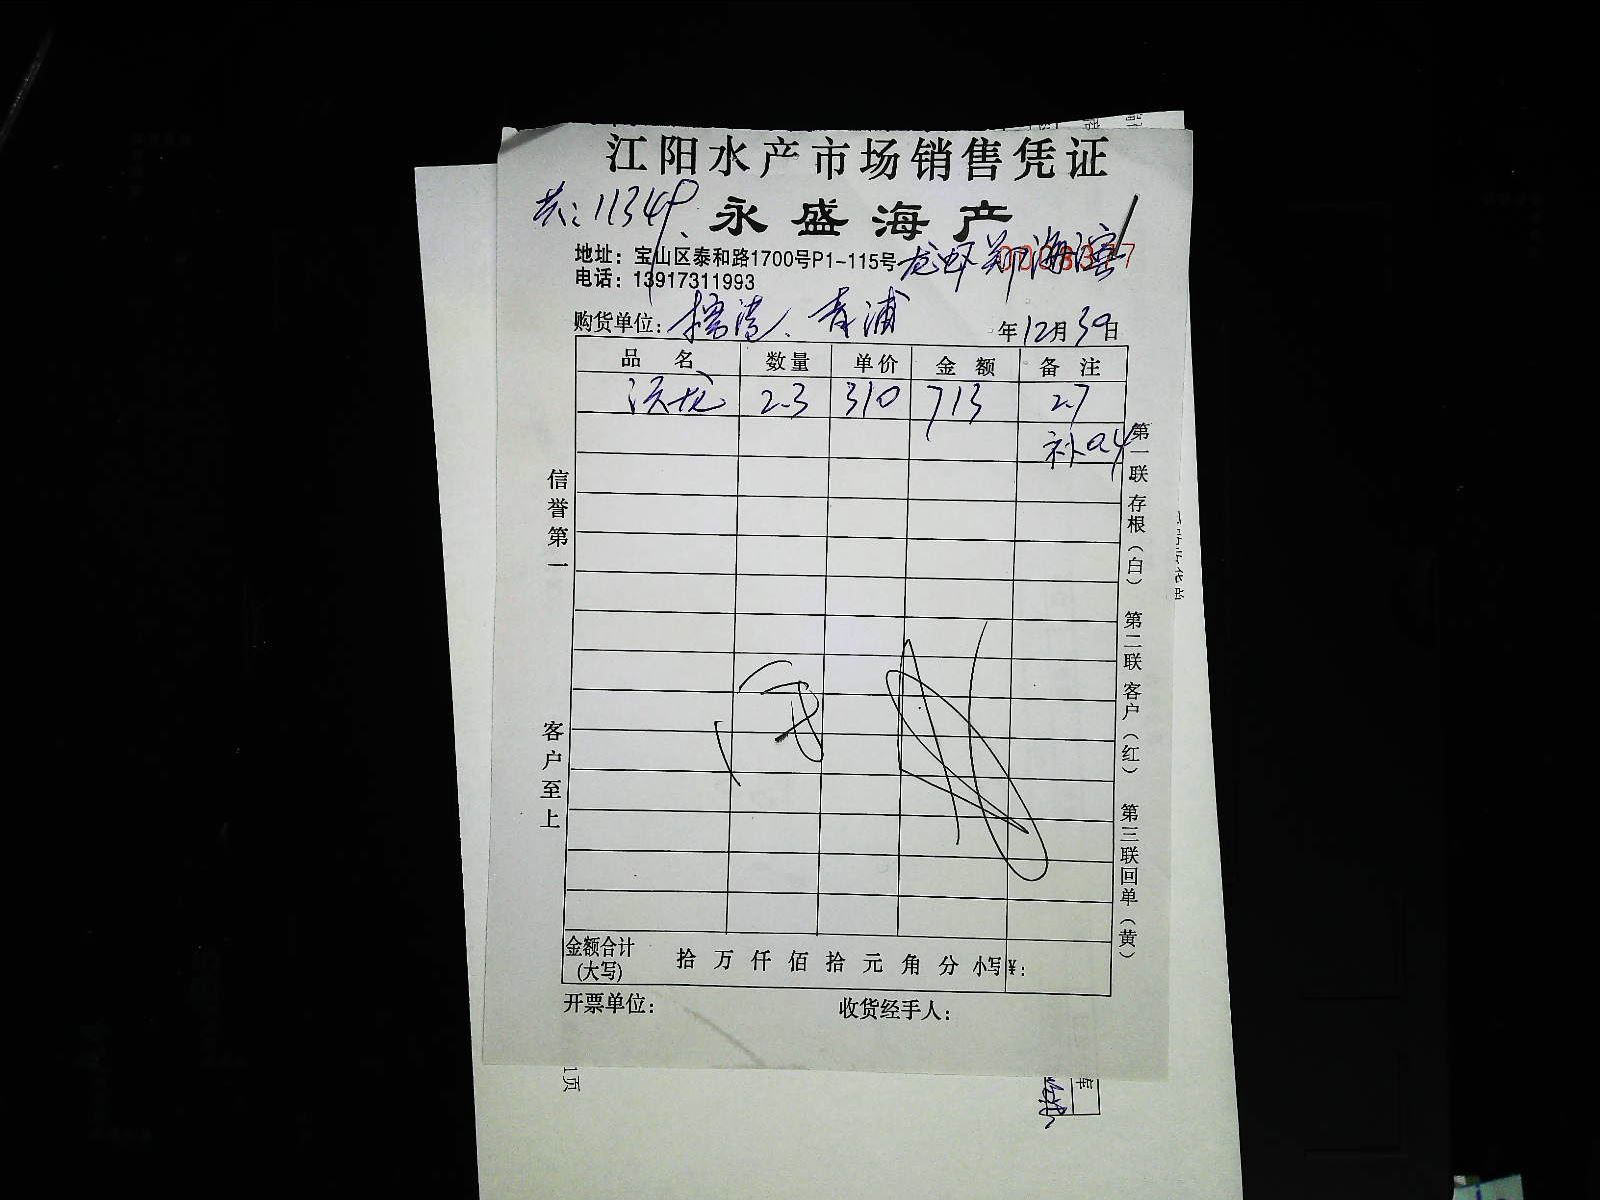 江阳水产市场销售凭证
11349
永盛海产
地址：宝山区泰和路1700号P1-115号
龙虾 郑海滨
电话：13917311993
购货单位： 青浦
年12月30日
品名 数量 单价 金额 备注
龙 2.3 310 713 2.7
补0.4
信誉第一
客户至上
第一联存根（白） 第二联客户（红） 第三联回单（黄）
金额合计（大写） 拾 万 仟 佰 拾 元 角 分 小写¥：
开票单位： 收货经手人：
1页
库